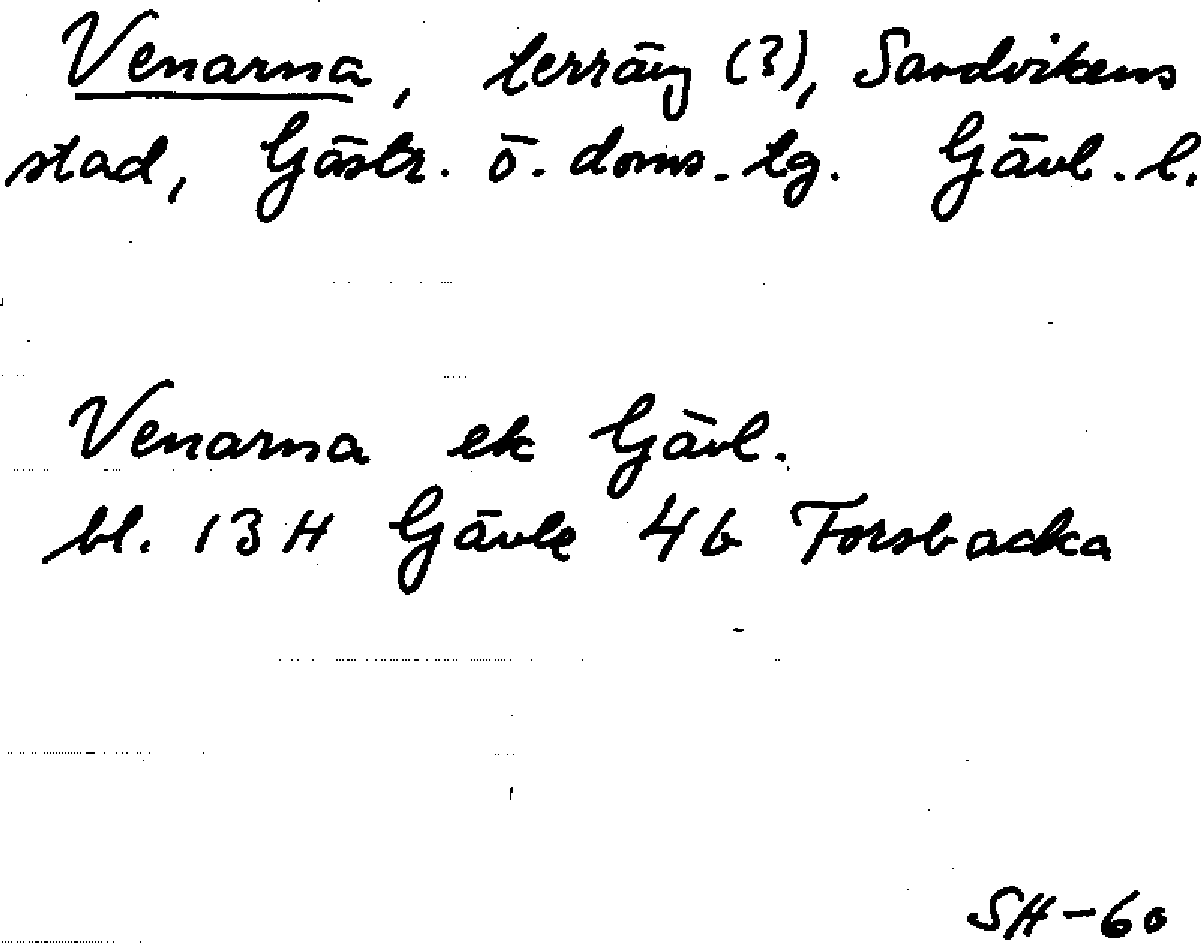 Venarna, terräng (?), Sandvikens
stad, Gästr. ö. doms. tg. Gävl. l.
Venarna ek Gävl.
bl. 13 H Gävle 4 b Forsbacka
SH-60